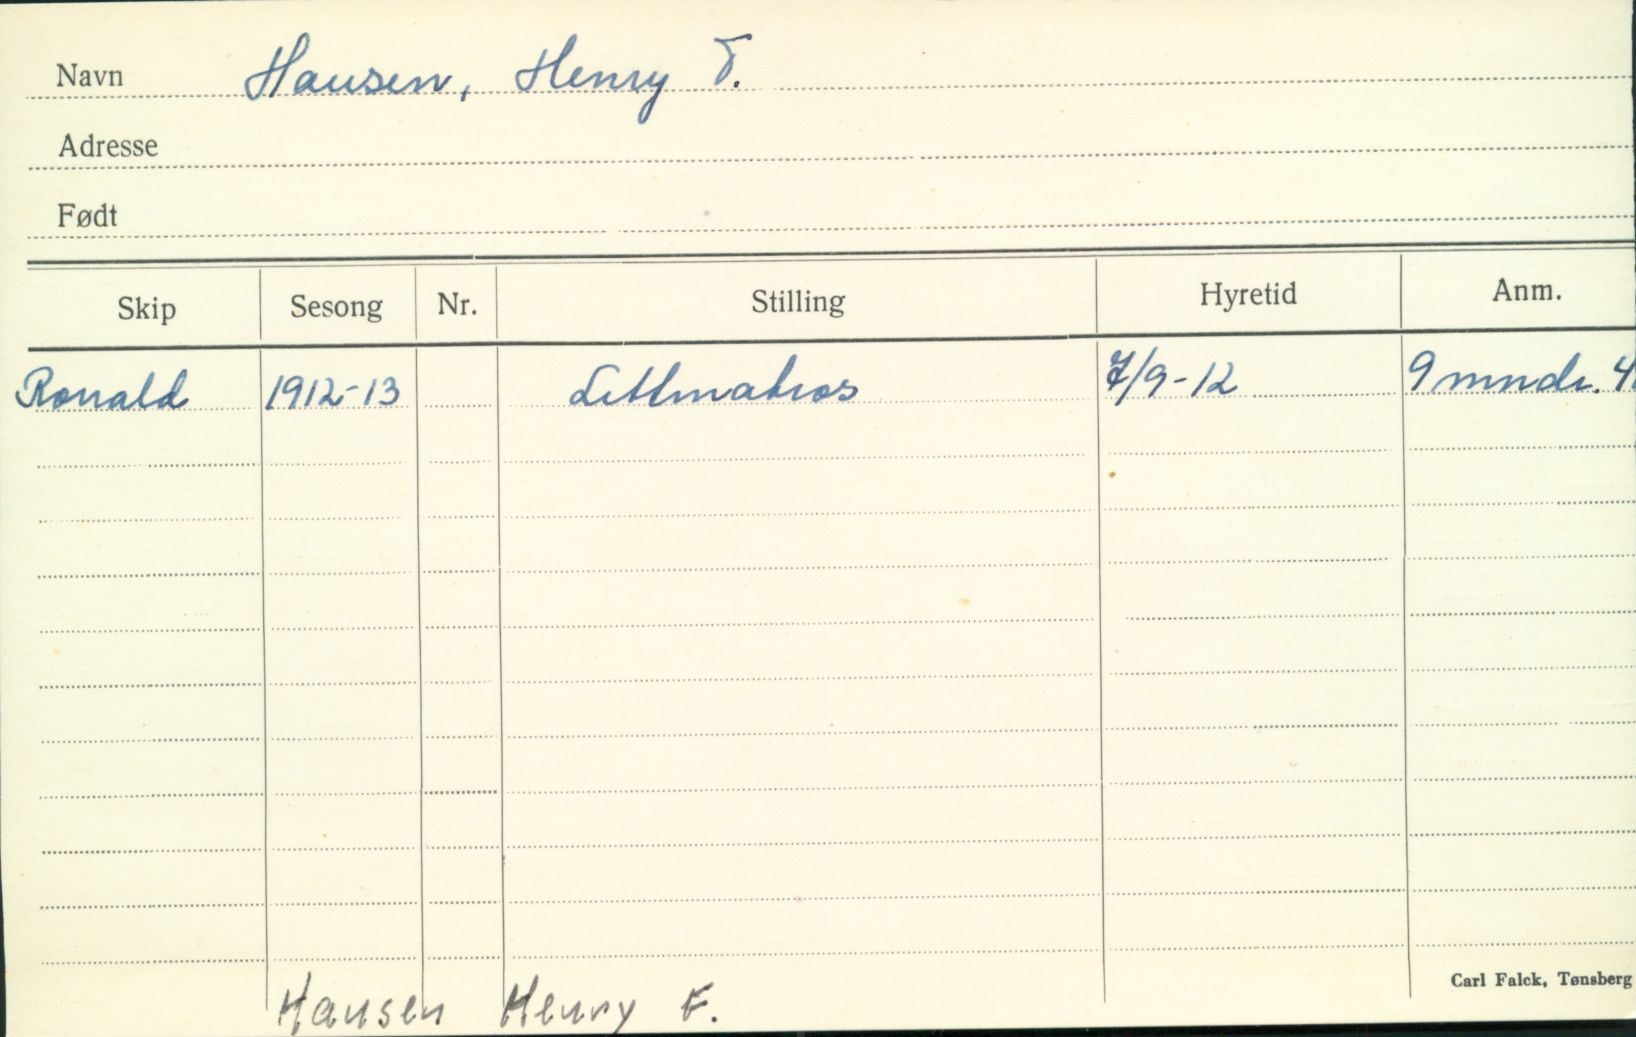 Navn Hansen, Henry F.
Adresse
Født
Skip Sesong Nr. Stilling Hyretid Anm.
Ronald 1912-13 Lettmatros 7/9-12 9 mndr. 4
Carl Falck, Tønsberg
Hansen Henry F.